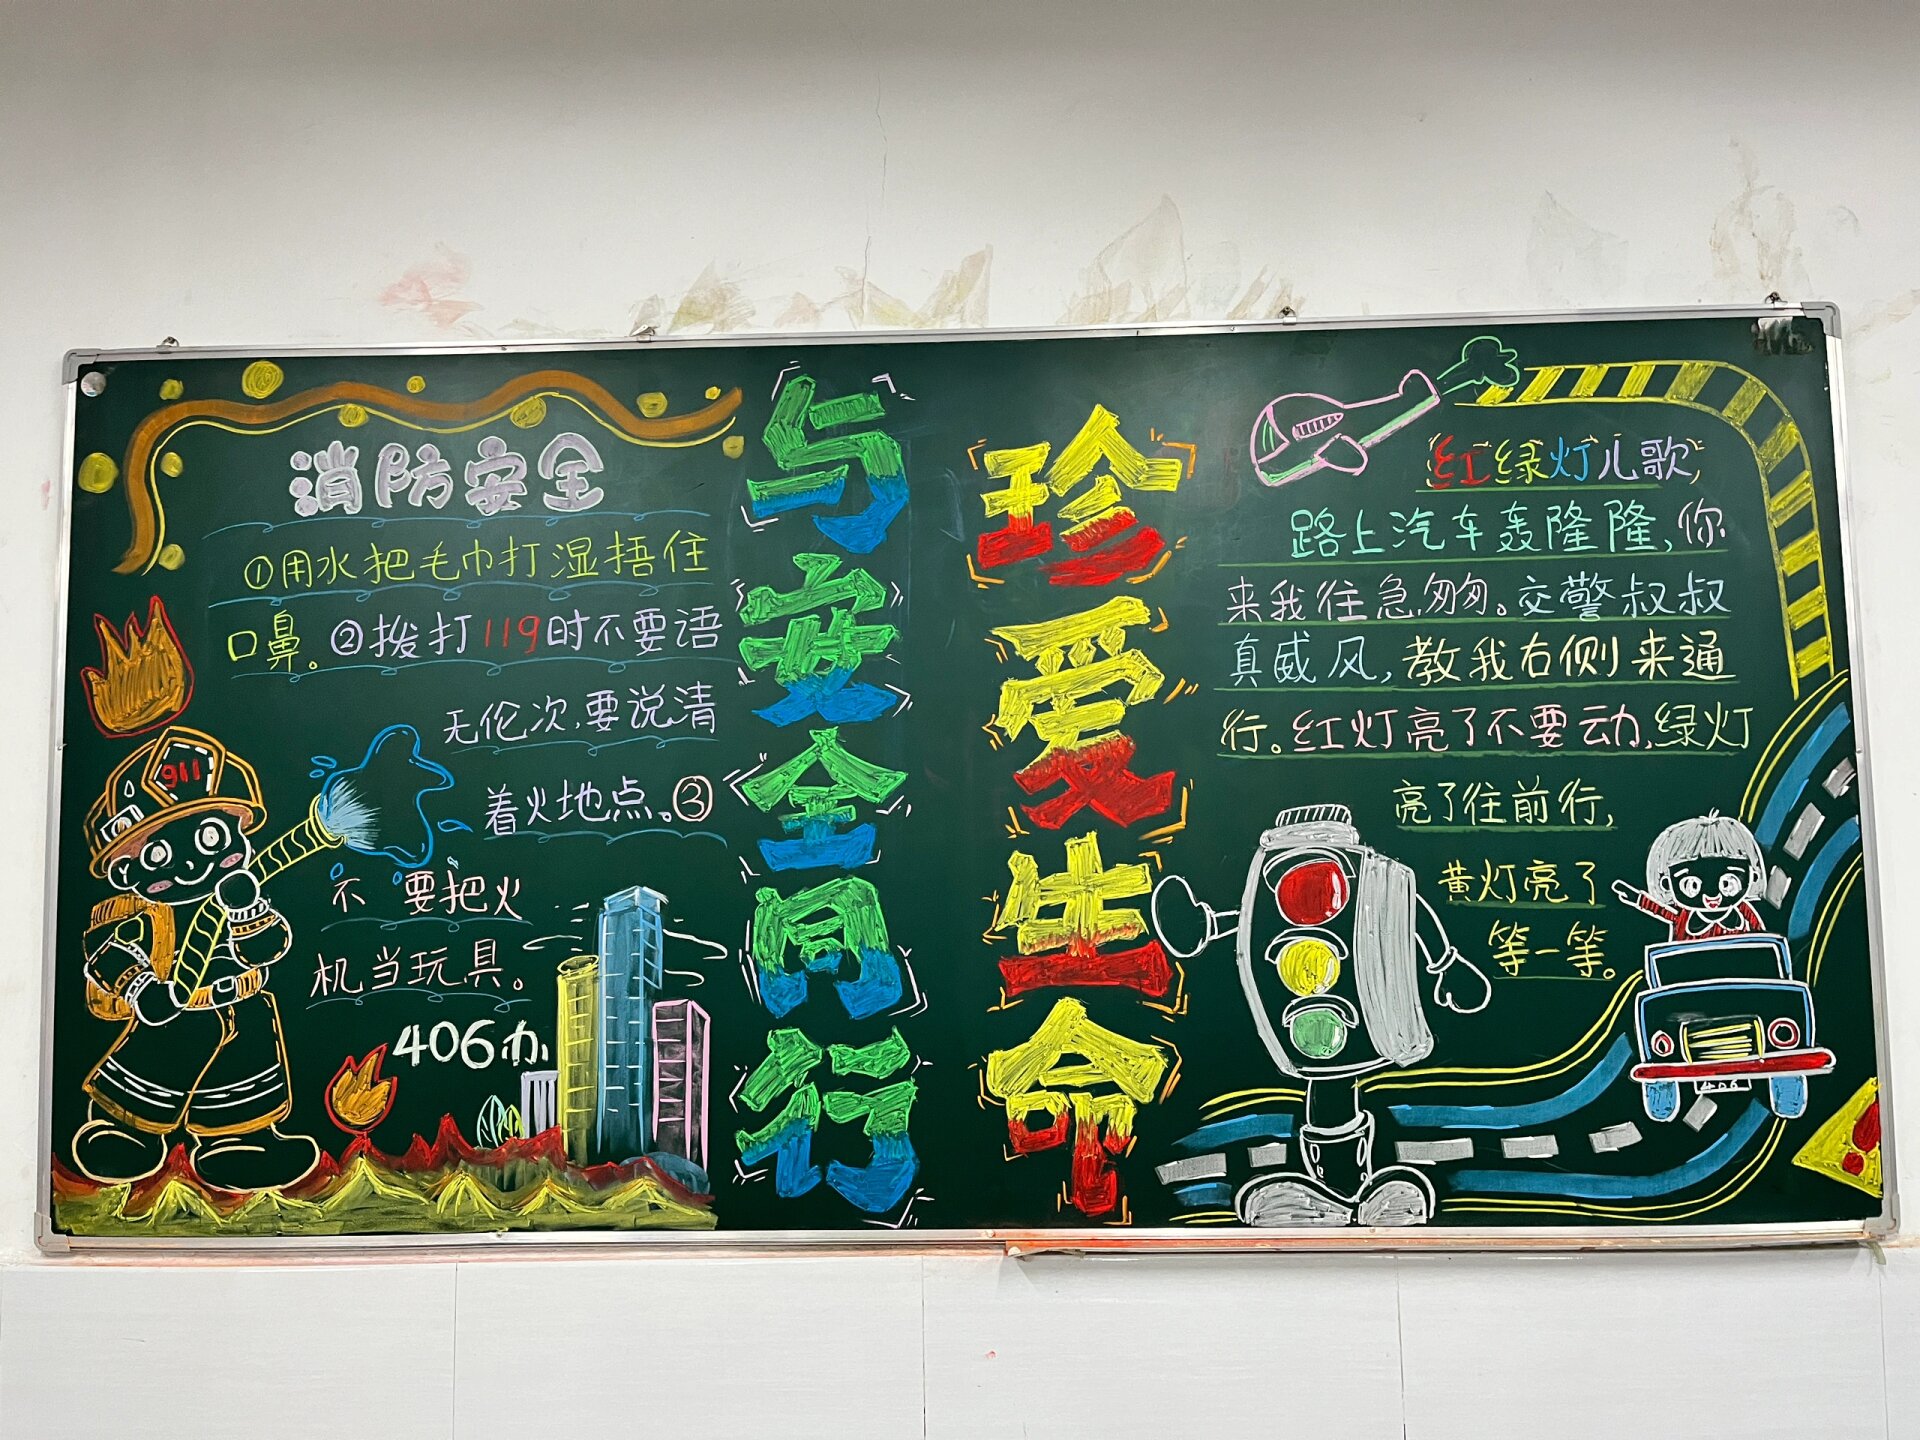 消防安全
①用水把毛巾打湿捂住
口鼻。②拨打119时不要语
无伦次,要说清
着火地点。③
不要把火
机当玩具。
406办
911
珍爱生命
与安全同行
红绿灯儿歌
路上汽车轰隆隆,你
来我往急匆匆。交警叔叔
真威风,教我右侧来通
行。红灯亮了不要动,绿灯
亮了往前行,
黄灯亮了
等一等。
406